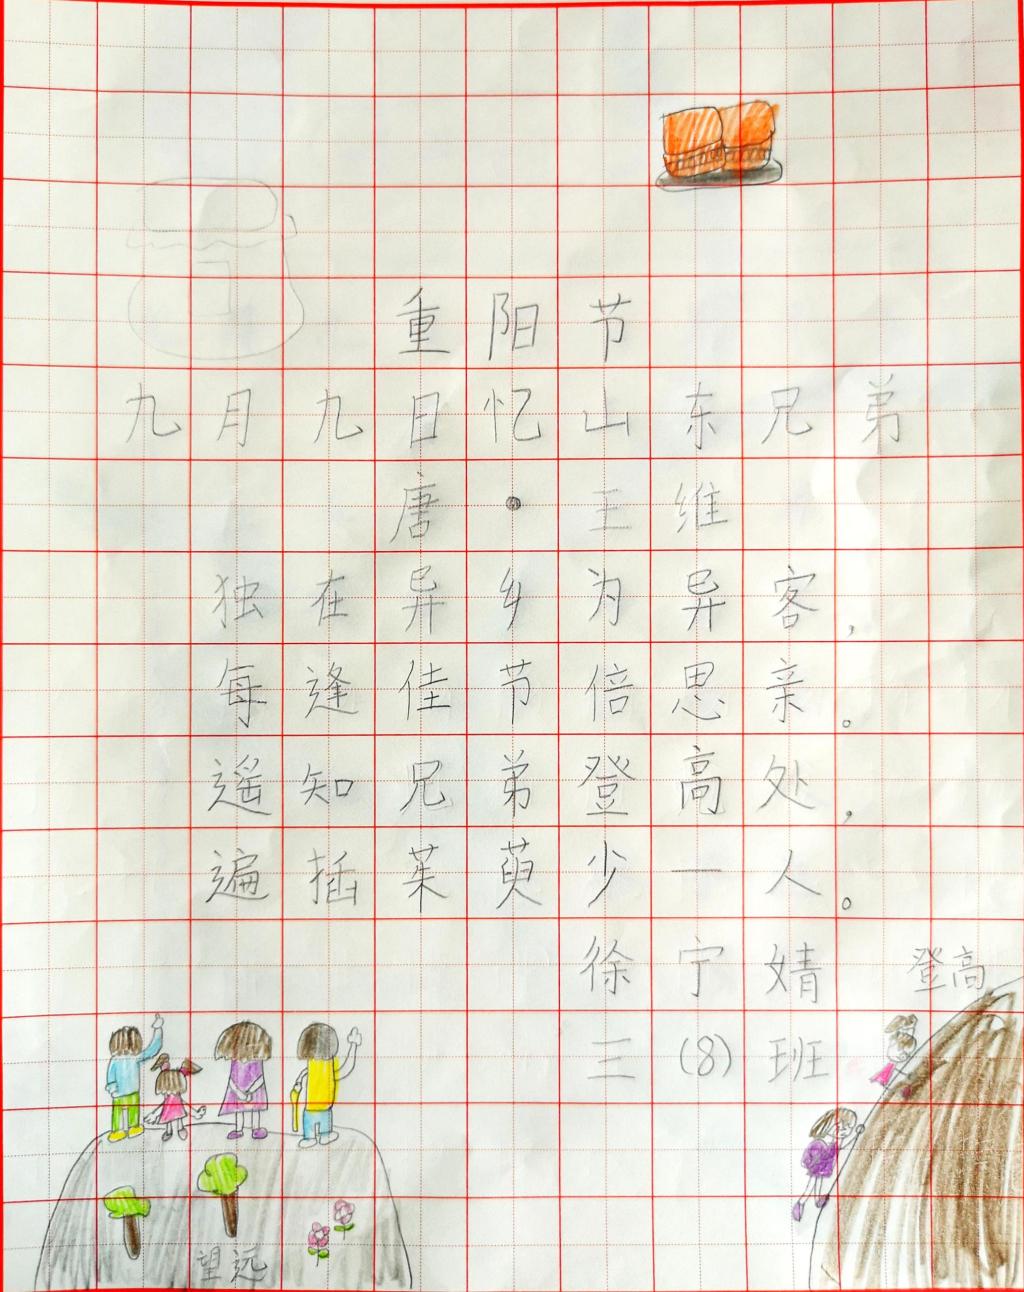 重阳节
九月九日忆山东兄弟
唐·王维
独在异乡为异客，
每逢佳节倍思亲。
遥知兄弟登高处，
遍插茱萸少一人。
徐宁婧
登高
三(8)班
望远